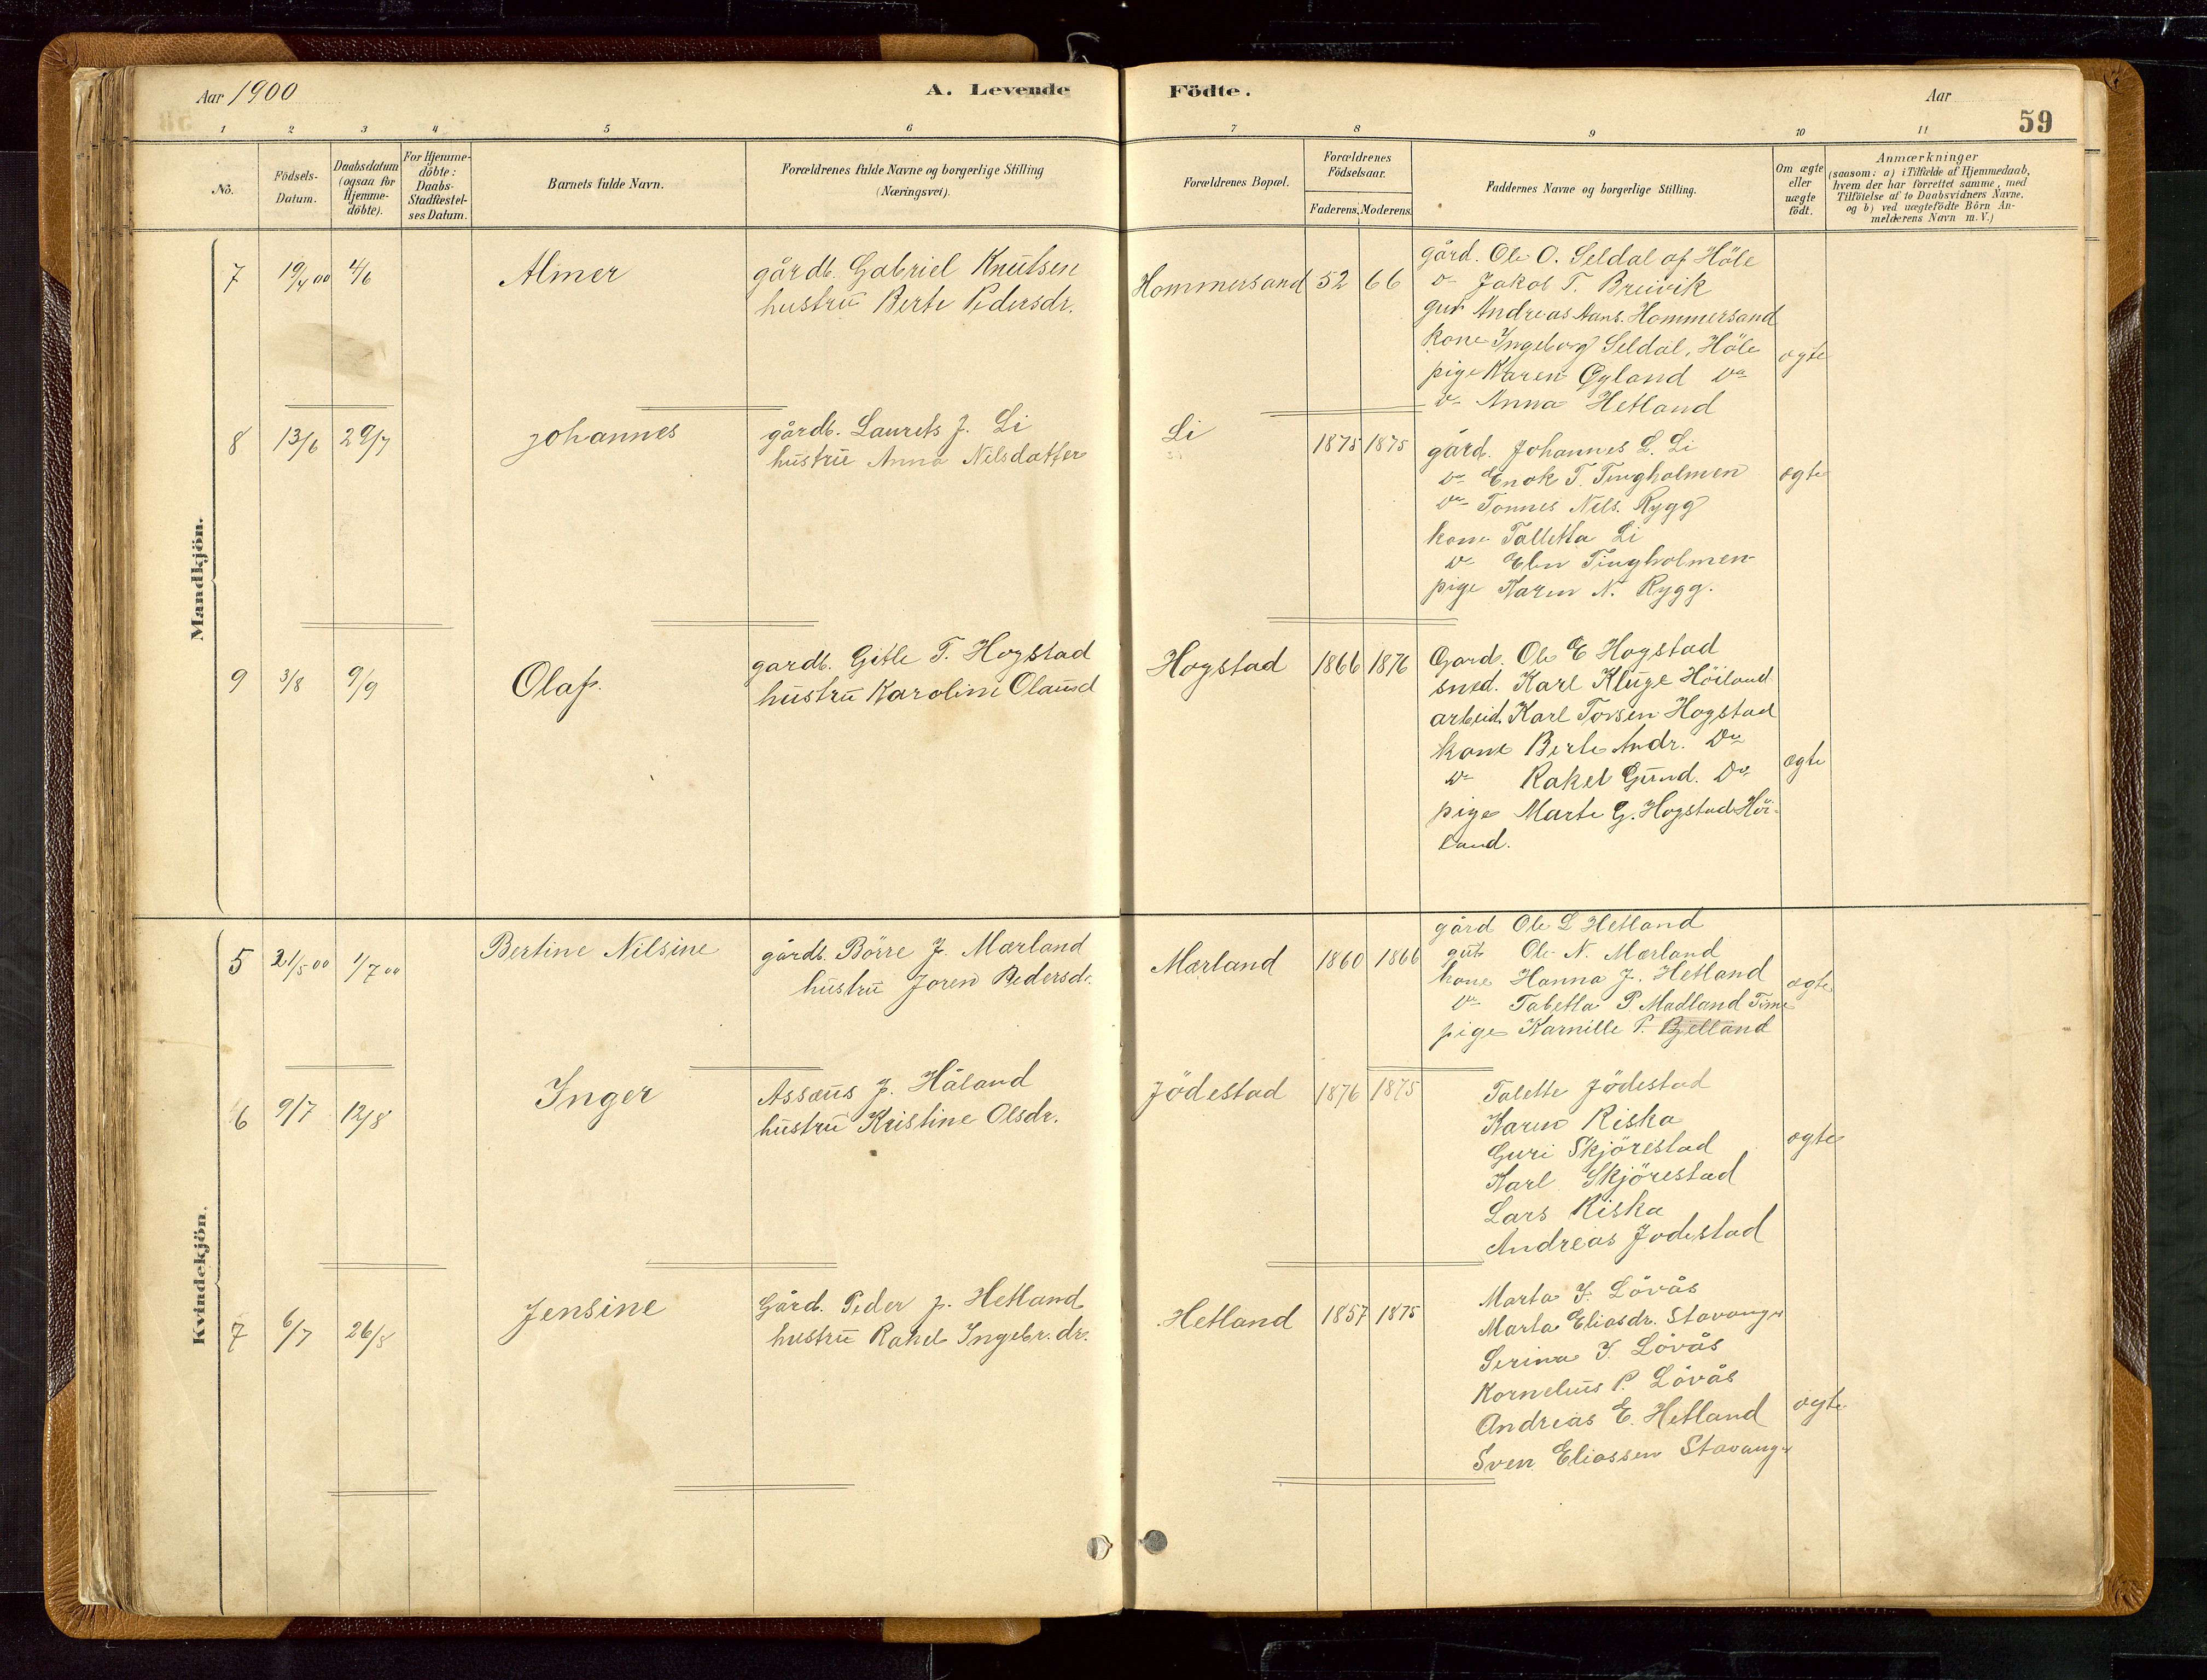 Aar 1900
A. Levende
Födte.
Aar
59
1 2 3 4 5 6 7 8 9 10 11
No.
Födsels-
Datum.
Daabsdatum
(ogsaa for
Hjemme-
döbte).
For Hjemme-
döbte:
Daabs-
Stadfæstel-
ses Datum.
Barnets fulde Navn.
Forældrenes fulde Navne og borgerlige Stilling
(Næringsvei).
Forældrenes Bopæl.
Forældrenes
Födselsaar.
Faderens.
Moderens.
Faddernes Navne og borgerlige Stilling.
Om ægte
eller
uægte
födt.
Anmærkninger
(saasom: a) i Tilfælde af Hjemmedaab,
hvem der har forrettet samme, med
Tilföielse af to Daabsvidners Navne,
og b) ved uægtefödte Börn An-
melderens Navn m.V.)
Mandkjön.
7 19/4 00 4/6 Almer
gårdb. Gabriel Knutsen
hustru Berte Pedersdr.
Hommersand 52 66
gård. Ole O. Seldal af Höle
Do Jakob T. Breivik
gut Andreas Hans. Hommersand
kone Ingeborg Seldal, Höle
pige Karen Gyland Do
Do Anna Hetland
ægte
8 13/6 29/7 Johannes
gårdb. Laurits J. Li
hustru Anna Nilsdatter
Li 1875 1875
gård. Johannes L. Li
Do Enok T. Tingholmen
Do Tonnes Nils. Rygg
kone Talletta Li
Do Elen Tingholmen
pige Karen N. Rygg.
ægte
9 3/8 9/9 Olaf.
gardb. Gitle T. Hogstad
hustru Karoline Olausd
Hogstad 1866 1876
Gard. Ole E Hogstad
smed. Karl Kluge Höiland
arbeid. Karl Torsen Hogstad
kone Berte Andr. Do
Do Rakel Gund. Do
pige Marte G. Hogstad Höi-
land.
ægte
Kvindekjön.
5 21/5 00 1/7 00 Bertine Nilsine
gårdb. Börre J. Mærland
hustru Joren Pedersdr.
Mærland 1860 1866
gård Ole L Hetland
gut Ole N. Mærland
kone Hanna J. Hetland
Do Tabetta P. Madland Time
pige Karnille P. Bjelland
ægte
6 9/7 12/8 Inger
Assæus J. Håland
hustru Kristine Olsdr.
Jödestad 1876 1875
Talette Jödestad
Karen Riska
Guri Skjörestad
Karl Skjörestad
Lars Riska
Andreas Jodestad
ægte
7 6/7 26/8 Jensine
Gård. Peder J. Hetland
hustru Rakel Ingebr. dr.
Hetland 1857 1875
Marta I. Lövås
Marta Eliasdr. Stavanger
Serina I. Lövås
Kornelius P. Lövås
Andreas E. Hetland
Sven Eliassen Stavanger
ægte